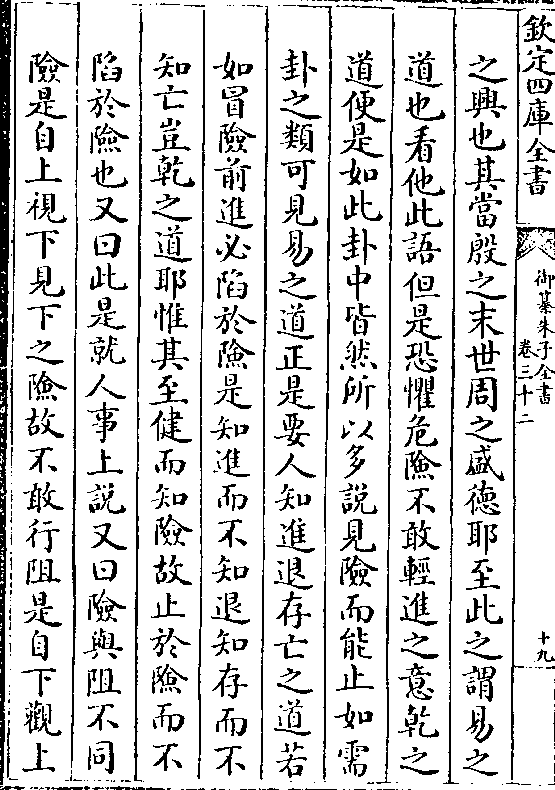 欽定四庫全書
御纂朱子全書
卷三十二
十九
之興也其當殷之末世周之盛德耶至此之謂易之
道也看他此語但是恐懼危險不敢輕進之意乾之
道便是如此卦中皆然所以多說見險而能止如需
卦之類可見易之道正是要人知進退存亡之道若
如冒險前進必陷於險是知進而不知退知存而不
知亡豈乾之道耶惟其至健而知險故止於險而不
陷於險也又曰此是就人事上說又曰險與阻不同
險是自上視下見下之險故不敢行阻是自下觀上